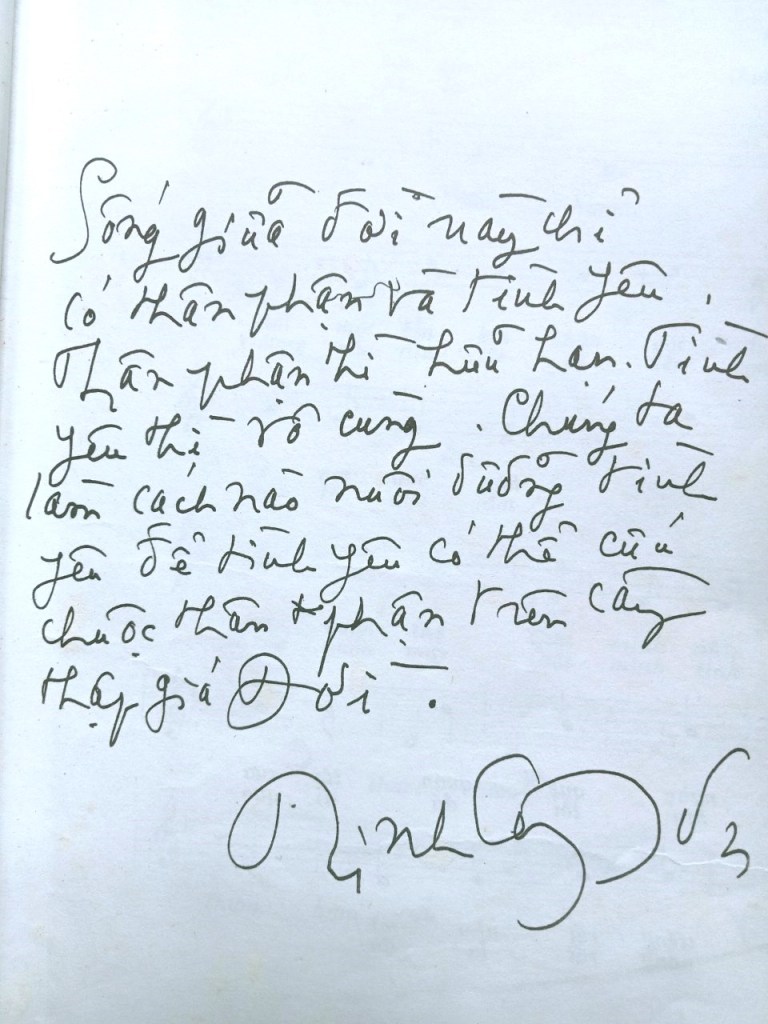 Sống giữa đời này chỉ
có thân phận và tình yêu.
Thân phận thì hữu hạn. Tình
yêu thì vô cùng. Chúng ta
làm cách nào nuôi dưỡng tình
yêu để tình yêu có thể cứu
chuộc thân phận trên cây
thập giá Đời.
Trịnh Công Sơn